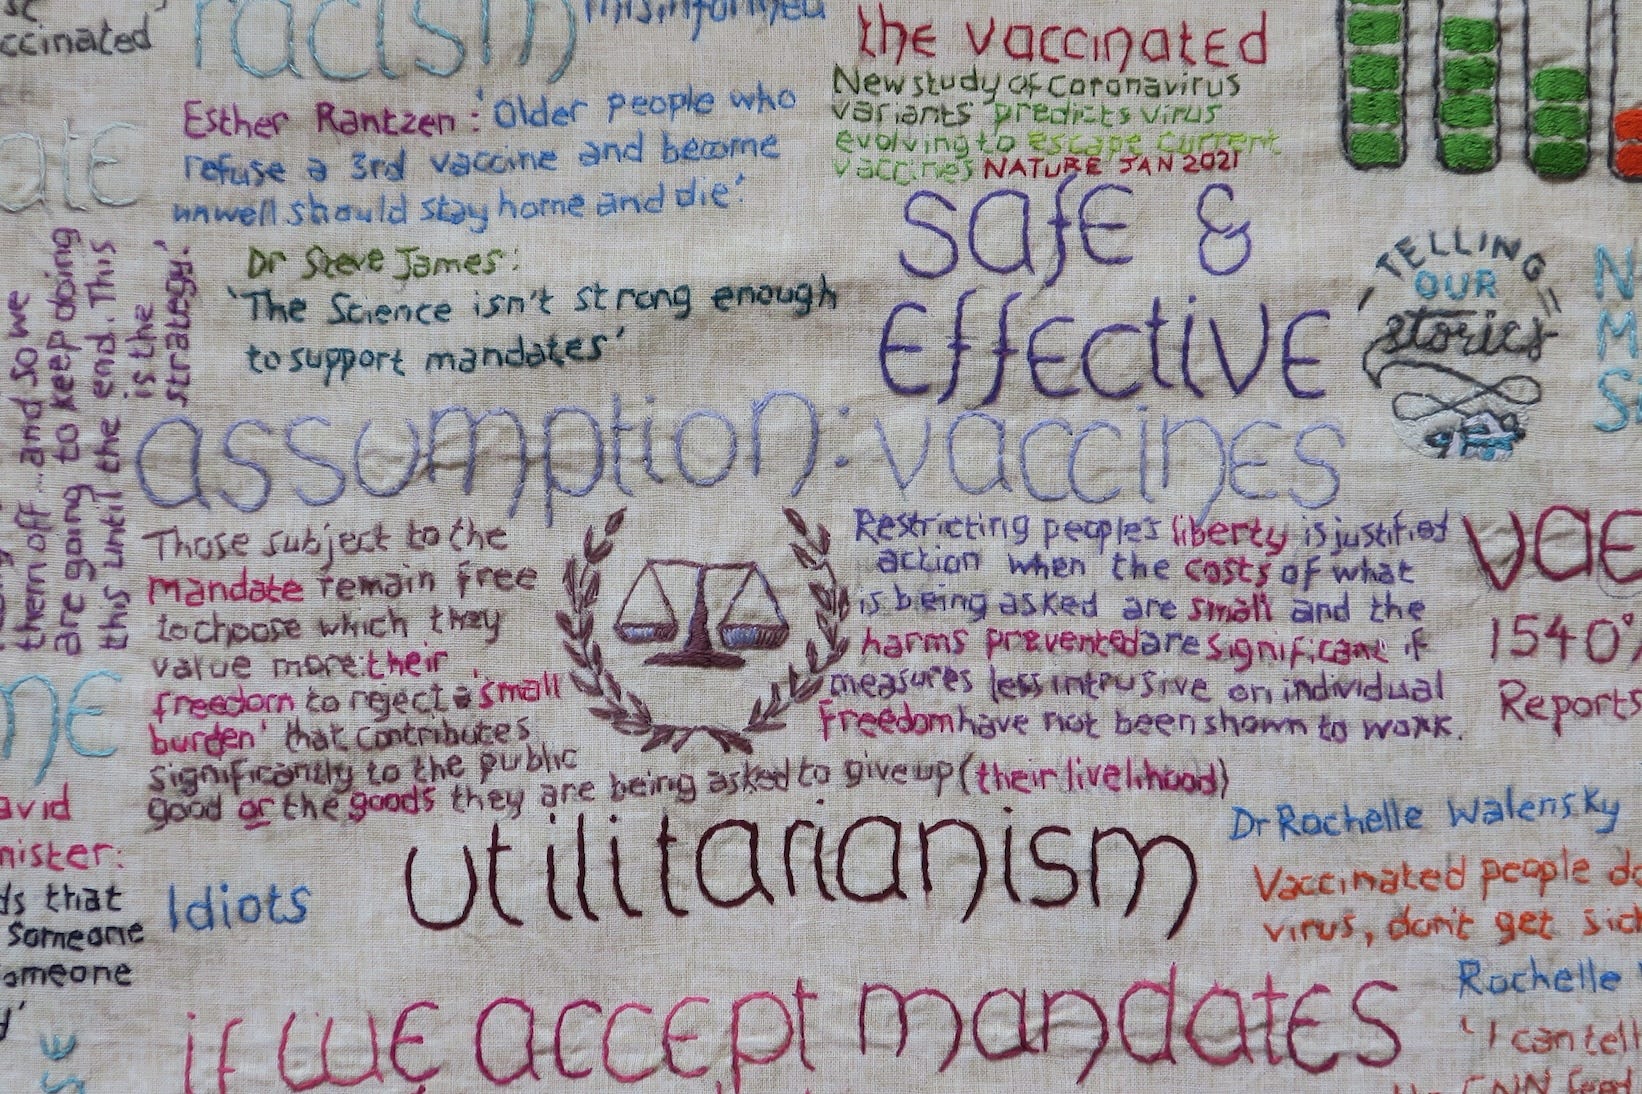 ccinated
racism
misinformed
the vaccinated
Esther Rantzen: 'Older people who
refuse a 3rd vaccine and become
unwell should stay home and die'.
New study of coronavirus
variants predicts virus
evolving to escape current
vaccines NATURE JAN 2021
ate
safe &
effective
Dr Steve James:
'The Science isn't strong enough
to support mandates'
TELLING
OUR
stories
N
M
S
them off ... and so we
are going to keep doing
this until the end. This
is the
strategy.'
assumption: vaccines
Those subject to the
mandate remain free
to choose which they
value more: their
freedom to reject a 'small
burden' that contributes
significantly to the public
good or the goods they are being asked to give up (their livelihood)
Restricting people's liberty is justified
action when the costs of what
is being asked are small and the
harms prevented are significant if
measures less intrusive on individual
freedom have not been shown to work.
vae
1540%
Reports
ne
utilitarianism
Dr Rochelle Walensky
Vaccinated people do
virus, don't get sick
avid
nister:
ds that
someone
omeone
d'
Idiots
Rochelle
'I can tell
CNN feed
if we accept mandates